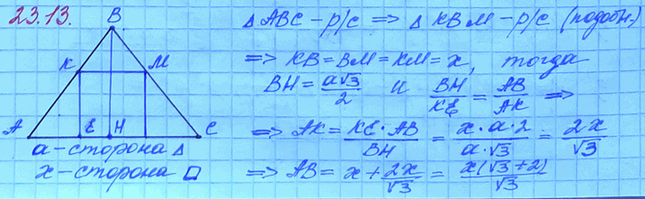 23.13.
B
K M
A E H C
a - сторона Δ
x - сторона □
Δ ABC - р/с => Δ KBM - р/с (подобн.)
=> KB = BM = KM = x, тогда
BH = a√3/2 и BH/KE = AB/AK =>
=> AK = KE·AB/BH = x·a·2/a·√3 = 2x/√3
=> AB = x + 2x/√3 = x(√3+2)/√3